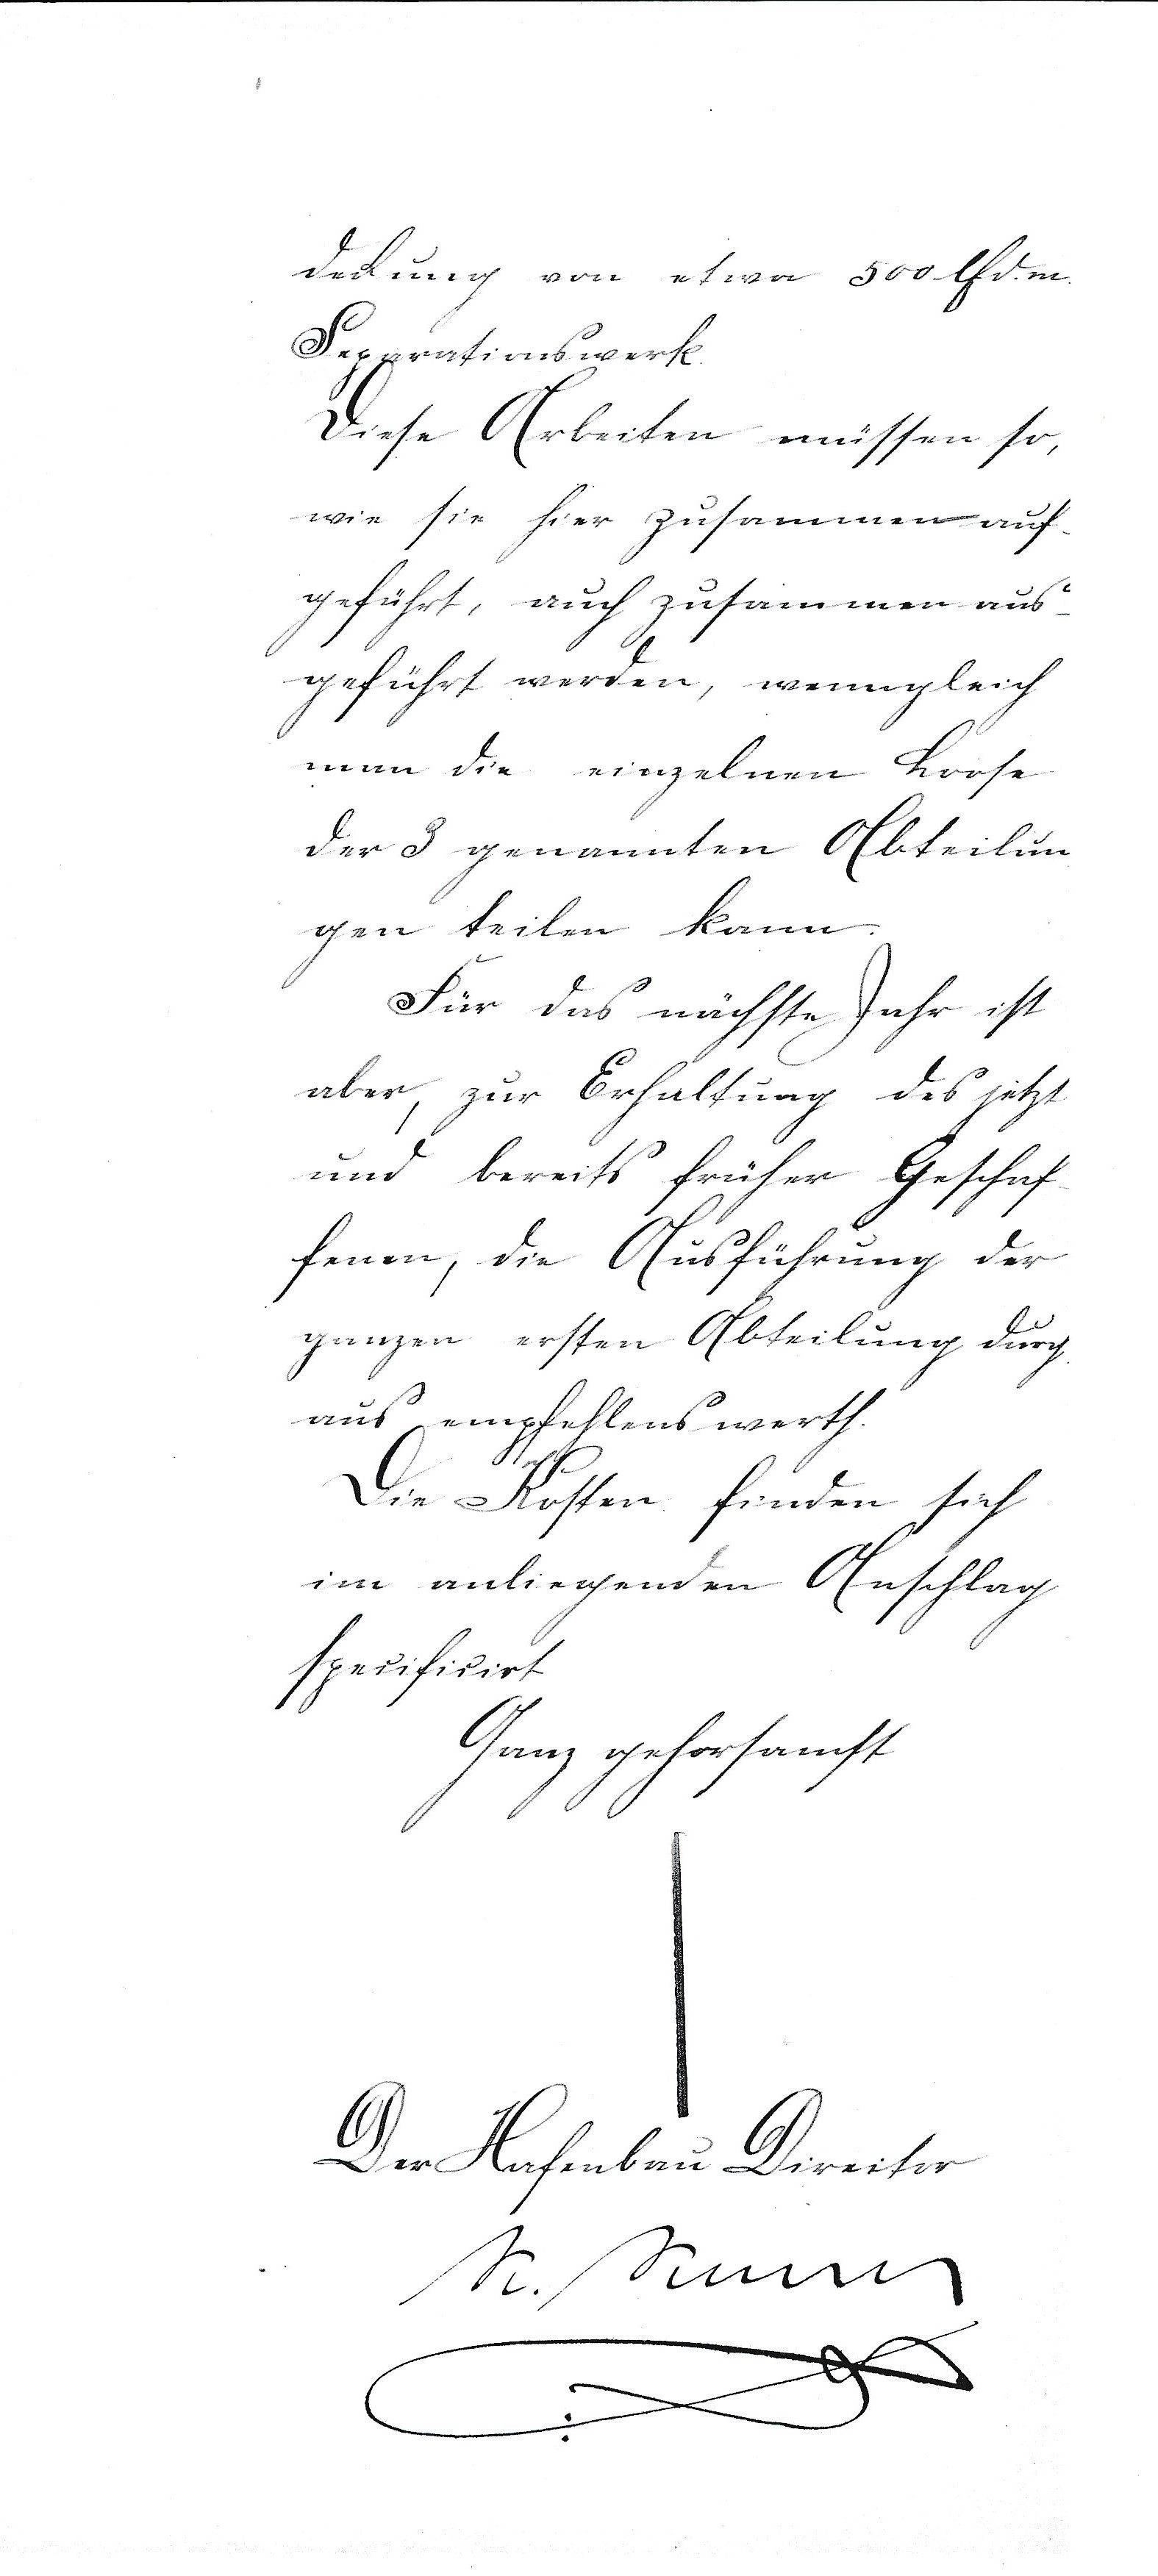 deckung von etwa 500 lfd. m.
Separationswerk.
Diese Arbeiten müssen so,
wie sie hier zusammen auf-
geführt, auch zusammen aus-
geführt werden, wenngleich
man die einzelnen Loose
der 3 genannten Abteilun
gen teilen kann.
Für das nächste Jahr ist
aber, zur Erhaltung des jetzt
und bereits früher Geschaf-
fenen, die Ausführung der
ganzen ersten Abteilung durch-
aus empfehlenswerth.
Die Kosten finden sich
im anliegenden Anschlag
specificirt
Ganz gehorsamst
Der Hafenbau Director